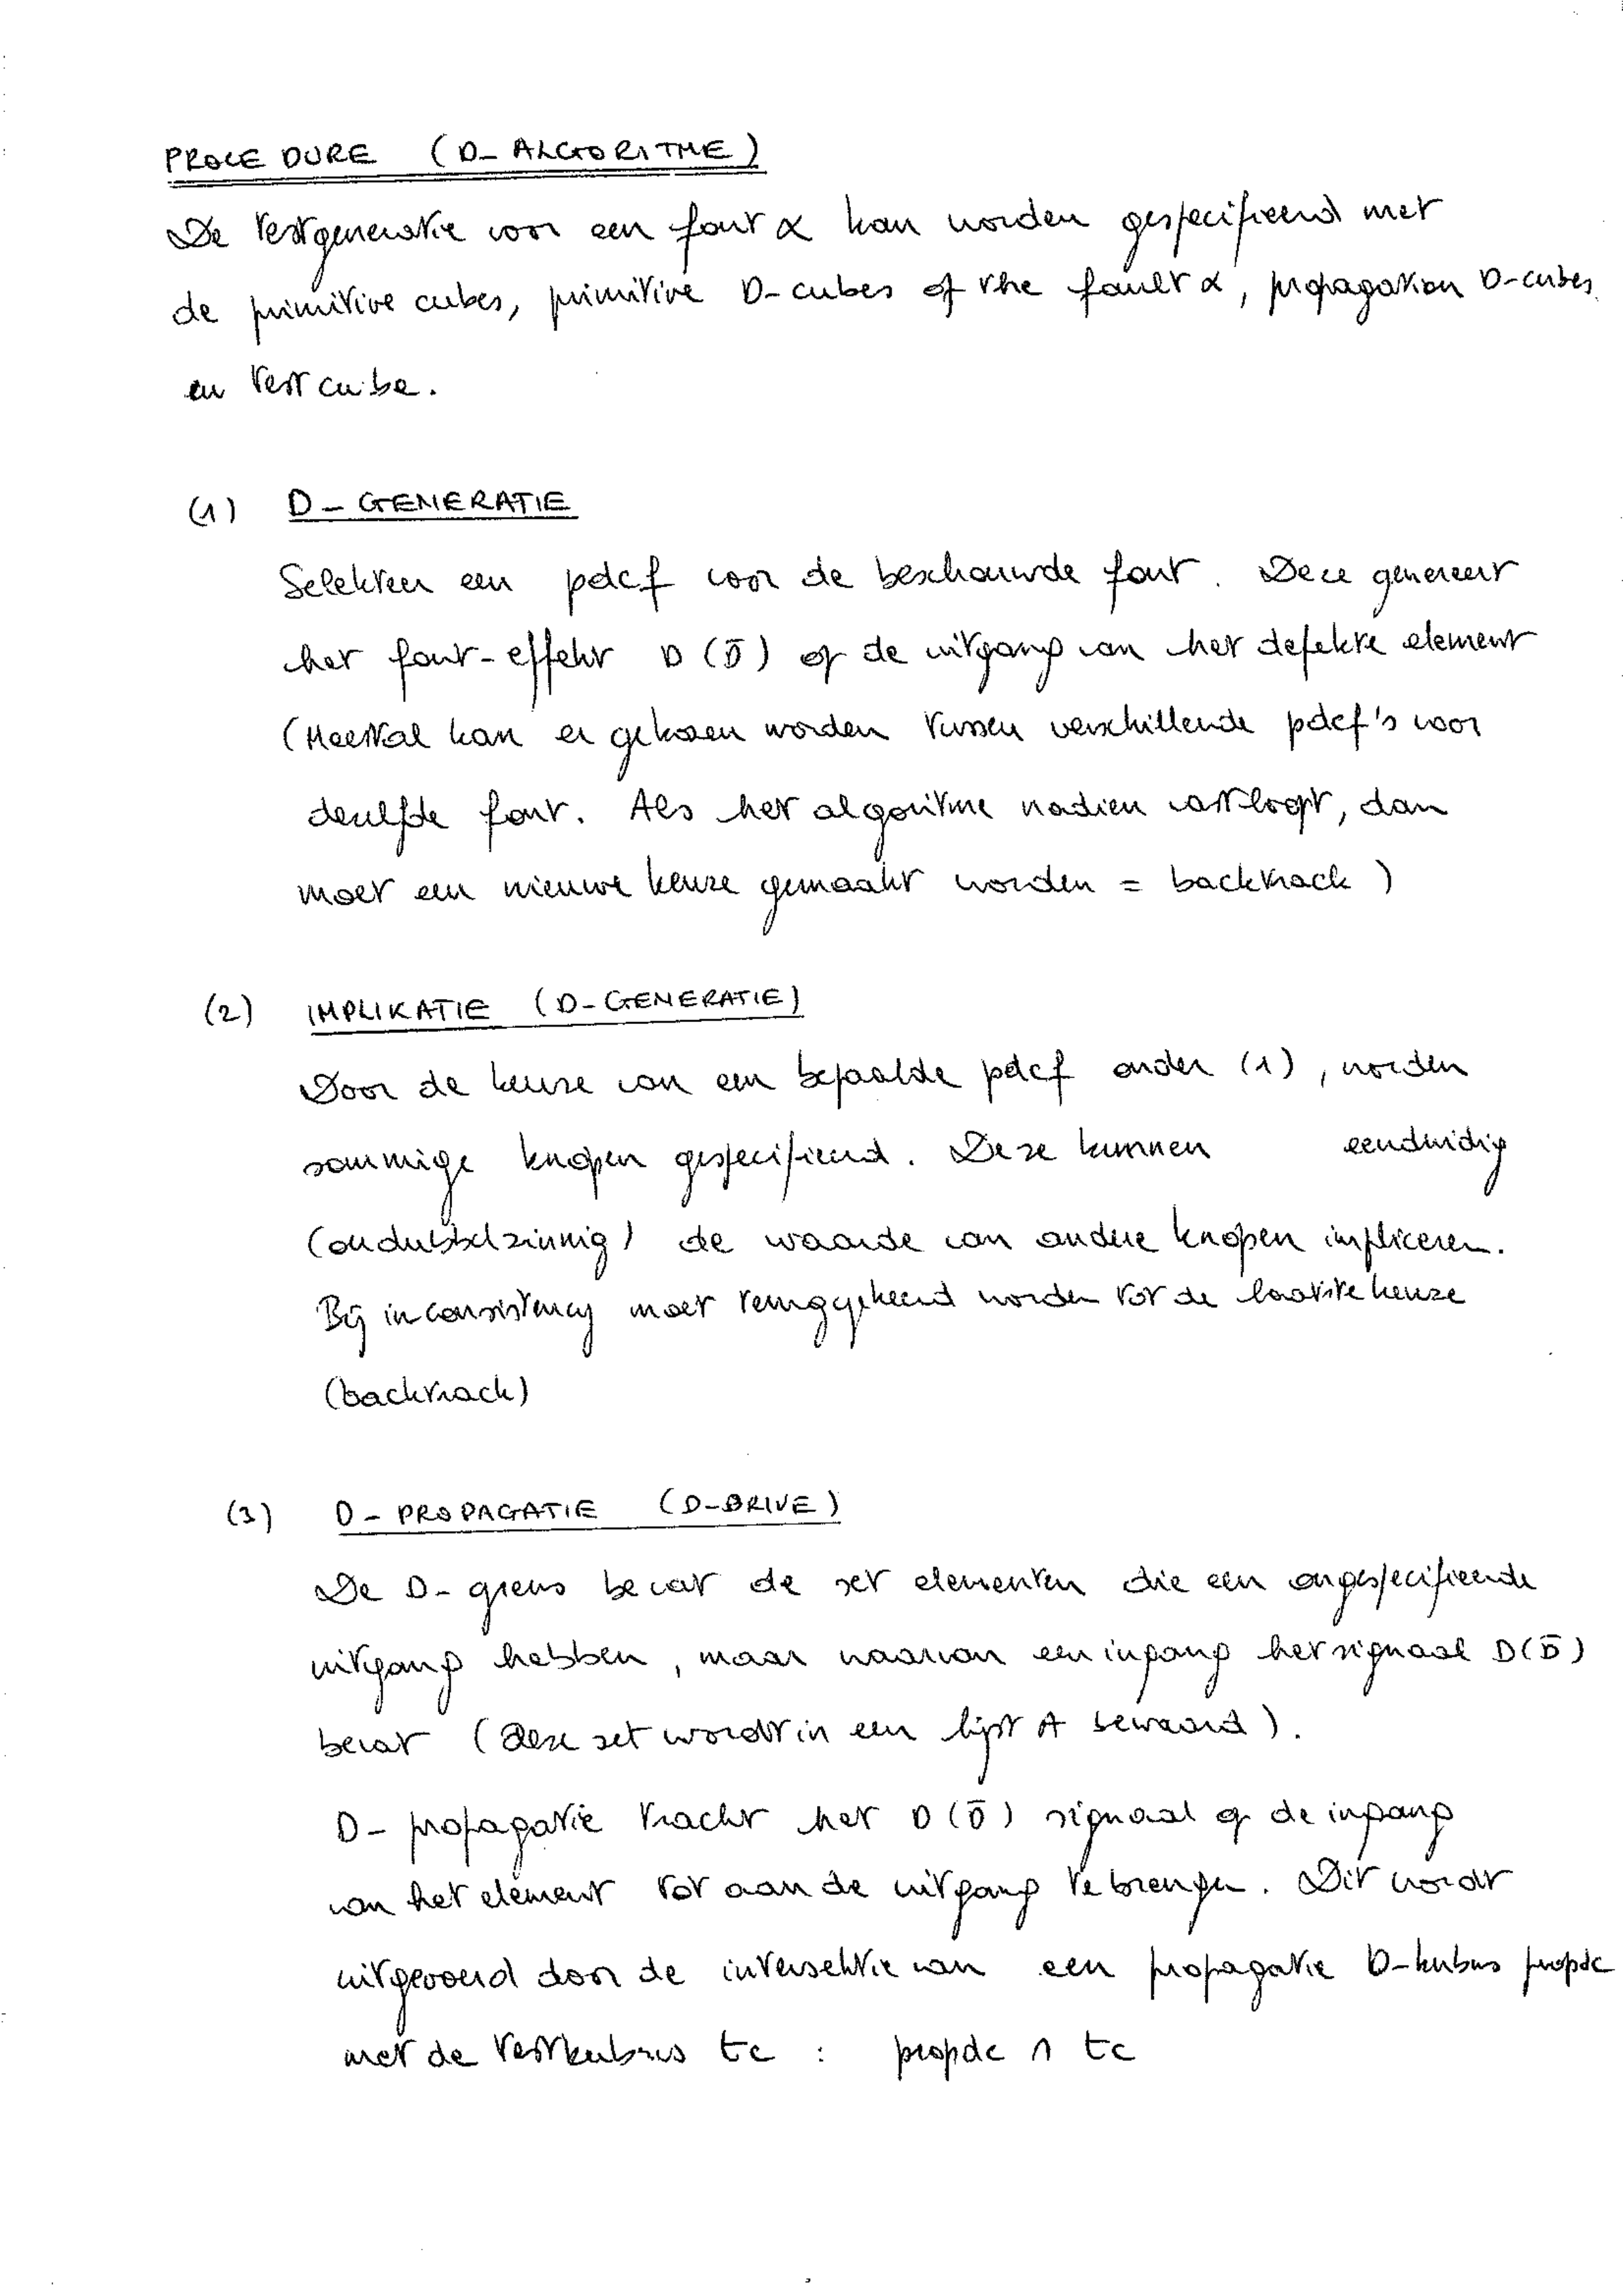 PROCEDURE (D-ALGORITME)
De testgeneratie voor een fout α kan worden gespecifieerd met
de primitive cubes, primitive D-cubes of the fault α, propagation D-cubes
en test cube.
(1) D-GENERATIE
Selekteer een pdcf voor de beschouwde fout. Deze genereert
het fout-effekt D (D̄) op de uitgang van het defekte element
(Meestal kan er gekozen worden tussen verschillende pdcf's voor
dezelfde fout. Als het algoritme nadien vastloopt, dan
moet een nieuwe keuze gemaakt worden = backtrack)
(2) IMPLIKATIE (D-GENERATIE)
Door de keuze van een bepaalde pdcf onder (1), worden
sommige knopen gespecifieerd. Deze kunnen eenduidig
(ondubbelzinnig) de waarde van andere knopen impliceren.
Bij inconsistency moet teruggekeerd worden tot de laatste keuze
(backtrack)
(3) D-PROPAGATIE (D-DRIVE)
De D-grens bevat de set elementen die een ongespecifieerde
uitgang hebben, maar waarvan een ingang het signaal D(D̄)
bevat (deze set wordt in een lijst A bewaard).
D-propagatie tracht het D(D̄) signaal op de ingang
van het element tot aan de uitgang te brengen. Dit wordt
uitgevoerd door de intersektie van een propagatie D-kubus propdc
met de testkubus tc : propdc ∩ tc